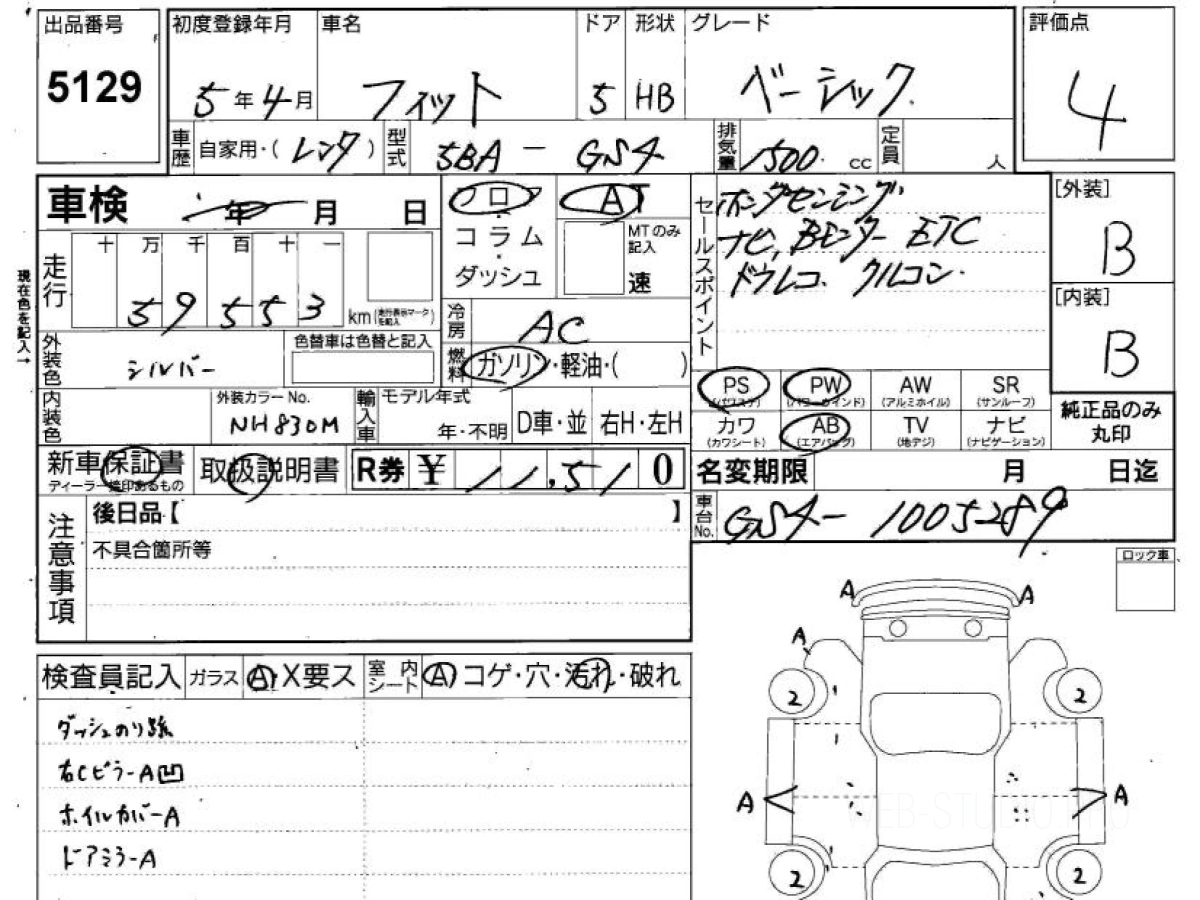 出品番号
5129
初度登録年月 5年4月
車名 フィット
ドア 5
形状 HB
グレード ベーシック
評価点 4
車歴 自家用・(レンタ)
型式 5BA - GS4
排気量 1500 cc
定員 人
車検 年 月 日
フロア
コラム
ダッシュ
AT
MTのみ記入
速
セールスポイント
ホンダセンシング
ナビ, Bモンター ETC
ドラレコ クルコン
[外装] B
[内装] B
現在色を記入→
走行 十 万 千 百 十 一
59553 km (走行表示マークを記入)
冷房 AC
燃料 ガソリン・軽油・( )
外装色 シルバー
色替車は色替と記入
内装色
外装カラーNo. NH830M
輸入車 モデル年式 年・不明 D車・並 右H・左H
PS (パワステ) PW (パワーウインド) AW (アルミホイル) SR (サンルーフ)
カワ (カワシート) AB (エアバッグ) TV (地デジ) ナビ (ナビゲーション)
純正品のみ丸印
新車保証書 ディーラー捺印あるもの
取扱説明書
R券 ¥ 11,510
名変期限 月 日迄
車台No. GS4-1005289
注意事項
後日品【 】
不具合箇所等
ロック車
検査員記入 ガラス A・X要ス 室内シート A コゲ・穴・汚れ・破れ
ダッシュのり跡
右CピラーA凹
ホイルカバーA
ドアミラーA
A A
A
2 2
A A
2 2
WEB-STUDIO.PRO